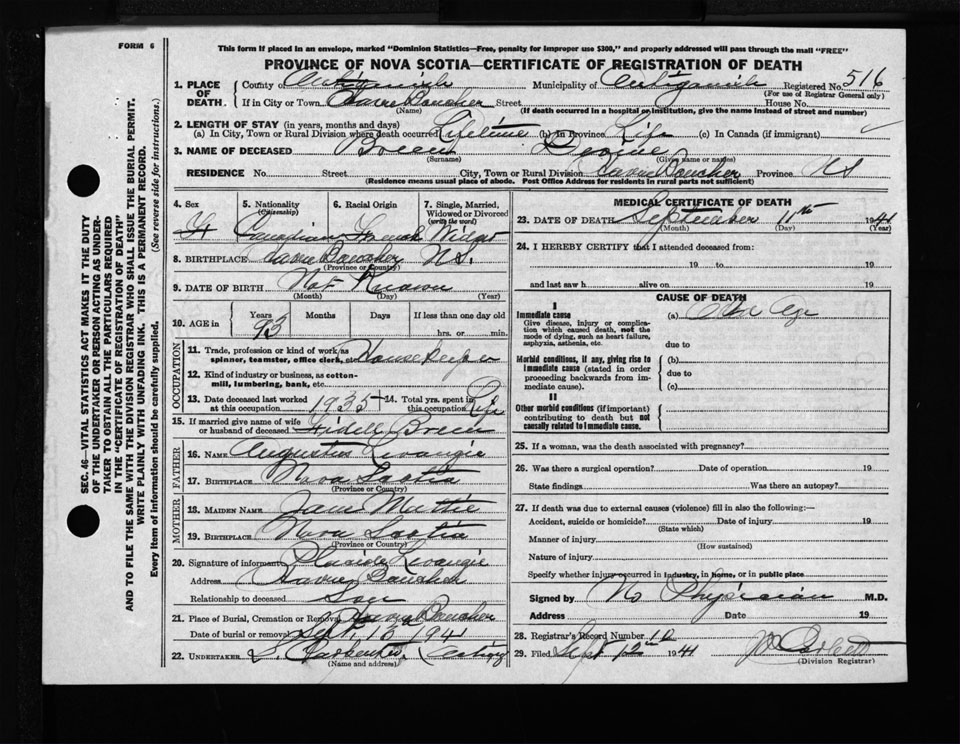 FORM 6
This form if placed in an envelope, marked "Dominion Statistics—Free, penalty for improper use $300," and properly addressed will pass through the mail "FREE"
PROVINCE OF NOVA SCOTIA—CERTIFICATE OF REGISTRATION OF DEATH
1. PLACE OF DEATH. County of Antigonish Municipality of Antigonish Registered No. 516
(For use of Registrar General only)
If in City or Town Havre Boucher Street House No.
(Name) (If death occurred in a hospital or institution, give the name instead of street and number)
2. LENGTH OF STAY (in years, months and days)
(a) In City, Town or Rural Division where death occurred Lifetime (b) In Province Life (c) In Canada (if immigrant)
3. NAME OF DECEASED Breen
(Surname) (Given name or names)
RESIDENCE No. Street City, Town or Rural Division Havre Boucher Province NS
(Residence means usual place of abode. Post Office Address for residents in rural parts not sufficient)
4. Sex 5. Nationality (Citizenship) 6. Racial Origin 7. Single, Married, Widowed or Divorced (write the word)
F Canadian French Widow
8. BIRTHPLACE Havre Boucher N.S.
(Province or Country)
9. DATE OF BIRTH Not Known
(Month) (Day) (Year)
10. AGE in Years Months Days If less than one day old
93 hrs. or min.
OCCUPATION
11. Trade, profession or kind of work as spinner, teamster, office clerk, etc. Housekeeper
12. Kind of industry or business, as cotton-mill, lumbering, bank, etc.
13. Date deceased last worked at this occupation 1935 14. Total yrs. spent in this occupation Life
15. If married give name of wife or husband of deceased Fidele Breen
FATHER
16. NAME Augustus Levangie
17. BIRTHPLACE Nova Scotia
(Province or Country)
MOTHER
18. MAIDEN NAME Jane
19. BIRTHPLACE Nova Scotia
(Province or Country)
20. Signature of informant Placide Levangie
Address Havre Boucher
Relationship to deceased Son
21. Place of Burial, Cremation or Removal Havre Boucher
Date of burial or removal Sept. 13 1941
22. UNDERTAKER
(Name and address)
MEDICAL CERTIFICATE OF DEATH
23. DATE OF DEATH September 11th 1941
(Month) (Day) (Year)
24. I HEREBY CERTIFY that I attended deceased from:
19 to 19
and last saw h alive on 19
CAUSE OF DEATH
I
Immediate cause (a) Old Age
Give disease, injury or complication which caused death, not the mode of dying, such as heart failure, asphyxia, asthenia, etc.
due to
Morbid conditions, if any, giving rise to immediate cause (stated in order proceeding backwards from immediate cause).
(b)
due to
(c)
II
Other morbid conditions (if important) contributing to death but not causally related to immediate cause.
25. If a woman, was the death associated with pregnancy?
26. Was there a surgical operation? Date of operation 19
State findings Was there an autopsy?
27. If death was due to external causes (violence) fill in also the following:—
Accident, suicide or homicide? Date of injury 19
(State which)
Manner of injury
(How sustained)
Nature of injury
Specify whether injury occurred in industry, in home, or in public place
Signed by No Physician M.D.
Address Date 19
28. Registrar's Record Number 12
29. Filed Sept 12th 1941
(Division Registrar)
SEC. 46—VITAL STATISTICS ACT MAKES IT THE DUTY
OF THE UNDERTAKER OR PERSON ACTING AS UNDERTAKER TO OBTAIN ALL THE PARTICULARS REQUIRED
IN THE "CERTIFICATE OF REGISTRATION OF DEATH"
AND TO FILE THE SAME WITH THE DIVISION REGISTRAR WHO SHALL ISSUE THE BURIAL PERMIT.
WRITE PLAINLY WITH UNFADING INK. THIS IS A PERMANENT RECORD.
Every item of information should be carefully supplied. (See reverse side for instructions.)